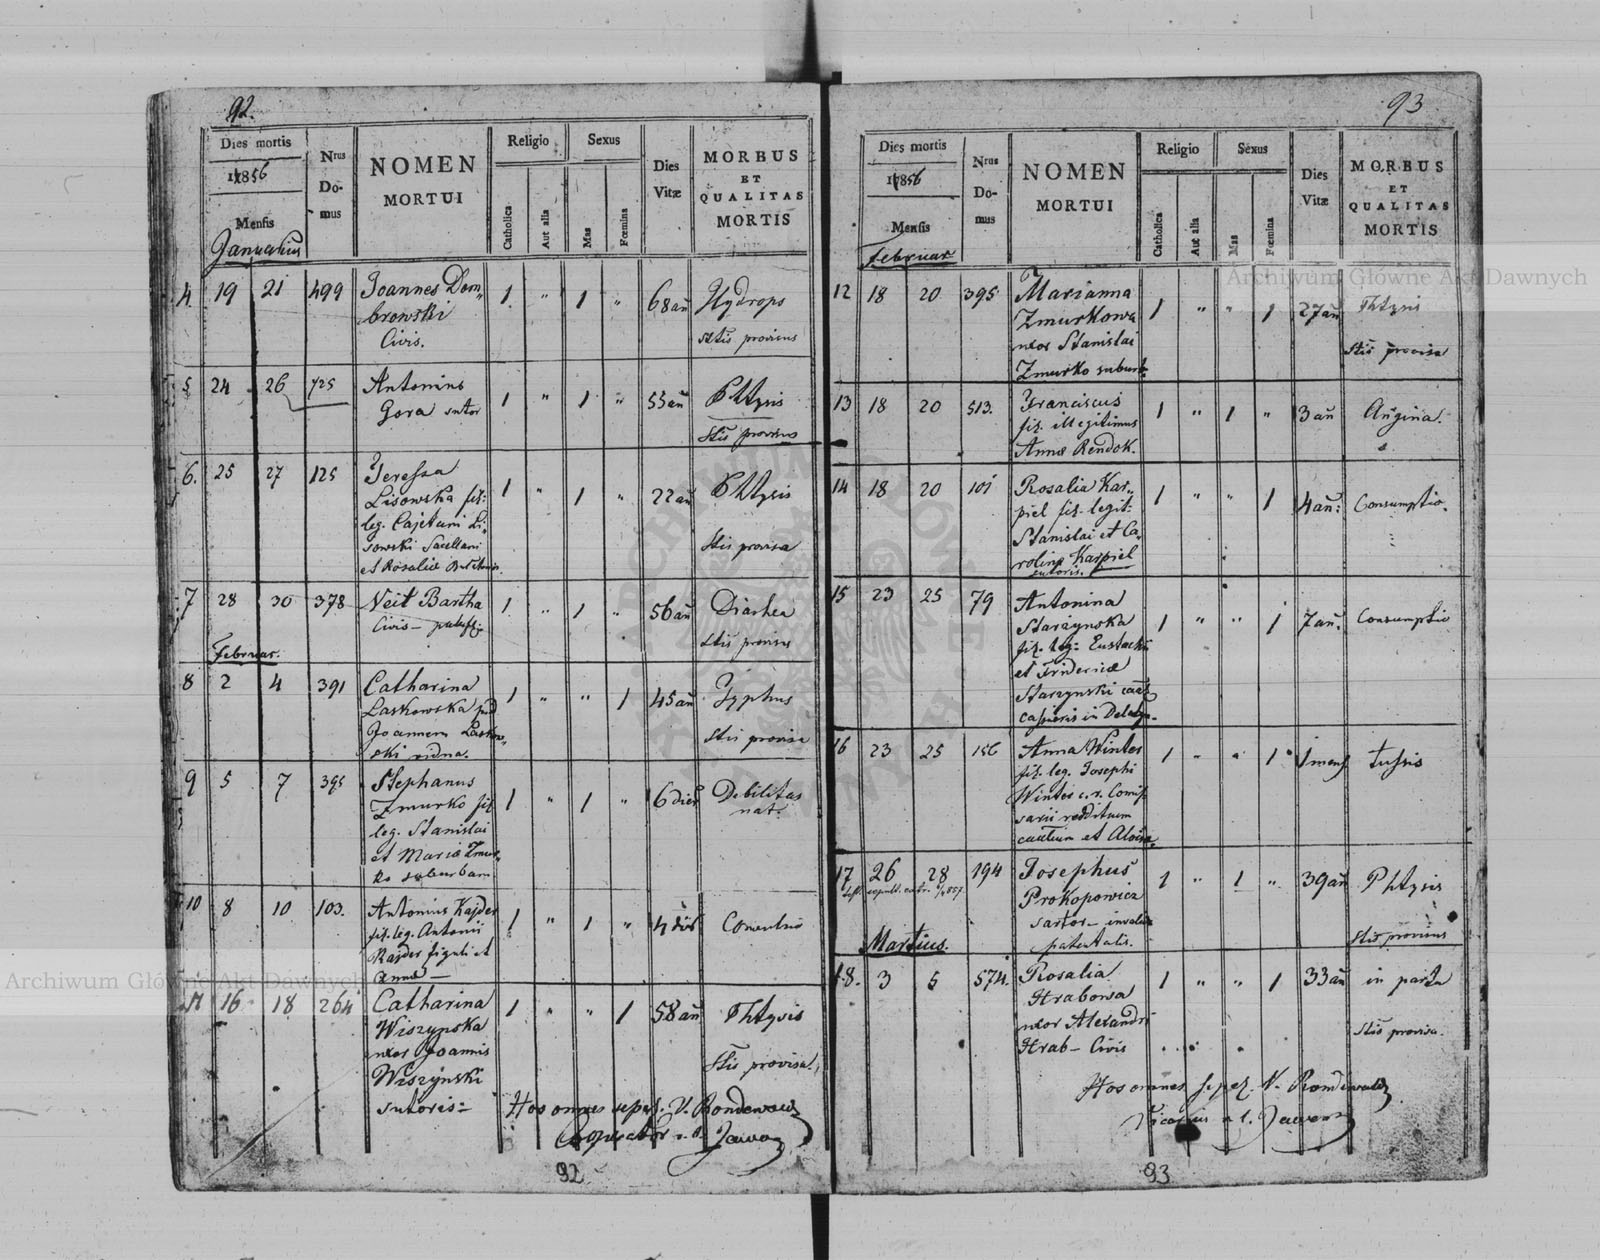 92.
Dies mortis
1856
Mensis
Januarius
Nrus
Do-
mus
NOMEN
MORTUI
Religio
Catholica
Aut alia
Sexus
Mas
Fœmina
Dies
Vitæ
MORBUS
ET
QUALITAS
MORTIS
4. 19 21 499 Joannes Dom- 1. " 1 " 68 añ Hydrops
browski
Civis. provisus
5 24 26 725 Antonius 1 " 1 " 55 añ Phtysis
Gora sutor
provisus
6. 25 27 125 Teressa 1 " 1 " 22 añ Phtysis
Lisowska fil:
leg. Cajetani Li-
sowski provisa
et Rosaliæ
7 28 30 378 Veit Bartha 1 " 1 " 56 añ Diarhea
Civis provisus
Februar.
8 2 4 391 Catharina 1 " " 1 45 añ Typhus
Laskowska
Joannem Laskow-
ski vidua. provisa
9 5 7 395 Stephanus 1 " 1 " 6 dies Debilitas
Zmurko fil. nat.
leg. Stanislai
et Mariæ Zmur-
ko suburban
10 8 10 103. Antonius Kajder 1 " 1 " 4 dies
fil. leg. Antonii
Kajder figuli et
Annæ
11 16 18 264 Catharina 1 " " 1 58 añ Phtysis
Wiszynska
uxor Joannis
Wiszynski provisa.
sutoris
Hos omnes sepel. V.
Cooperator
92
93
Dies mortis
1856
Mensis
Februar
Nrus
Do-
mus
NOMEN
MORTUI
Religio
Catholica
Aut alia
Sexus
Mas
Fœmina
Dies
Vitæ
MORBUS
ET
QUALITAS
MORTIS
12 18 20 395 Marianna 1 " " 1 27 añ Phtysis
Zmurkowa
uxor Stanislai
Zmurko suburb. provisa
13 18 20 513. Franciscus 1 " 1 " 3 añ Angina.
fil. illegitimus
Annæ Rendok.
14 18 20 101 Rosalia Kar- 1 " " 1 4 añ: Consumptio.
piel fil. legit:
Stanislai et Ca-
rolinæ Karpiel
sutoris.
15 23 25 79 Antonina 1 " " 1 7 añ. Consumptio
Starzynska
fil. leg. Eustachii
et Fridericæ
Starzynski
16 23 25 156 Anna Winter 1 " " 1 1 mens tussis
fil. leg. Josephi
Winter c. r. Comis-
sarii reddituum
et
17 26 28 194 Josephus 1 " 1 " 39 añ Phtysis
Prokopowicz
sartor
patentalis. provisus
Martius.
18. 3 5 574. Rosalia 1 " " 1 33 añ in partu
Hrabowa
uxor Alexandri
Hrab Civis provisa.
Hos omnes sepel. V.
93
Archiwum Główne Akt Dawnych
Archiwum Główne Akt Dawnych